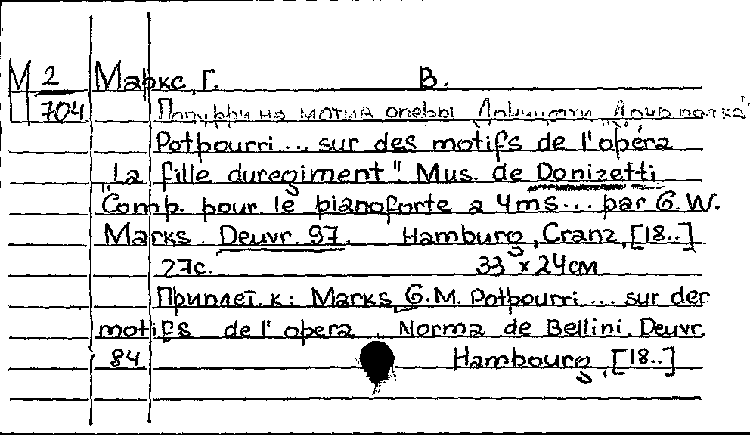 М 2 Маркс, Г. В.
704 Попурри на мотив оперы Доницетти „Дочь полка"
Potpourri... sur des motifs de l'opéra
„La fille duregiment". Mus. de Donizetti
Comp. pour le pianoforte a 4ms... par G.W.
Marks. Deuvr. 97. Hamburg, Cranz, [18..]
27с. 33 x 24см
Приплет. к: Marks, G.M. Potpourri... sur der
motifs de l'opera „Norma de Bellini. Deuvr.
84 Hambourg, [18..]